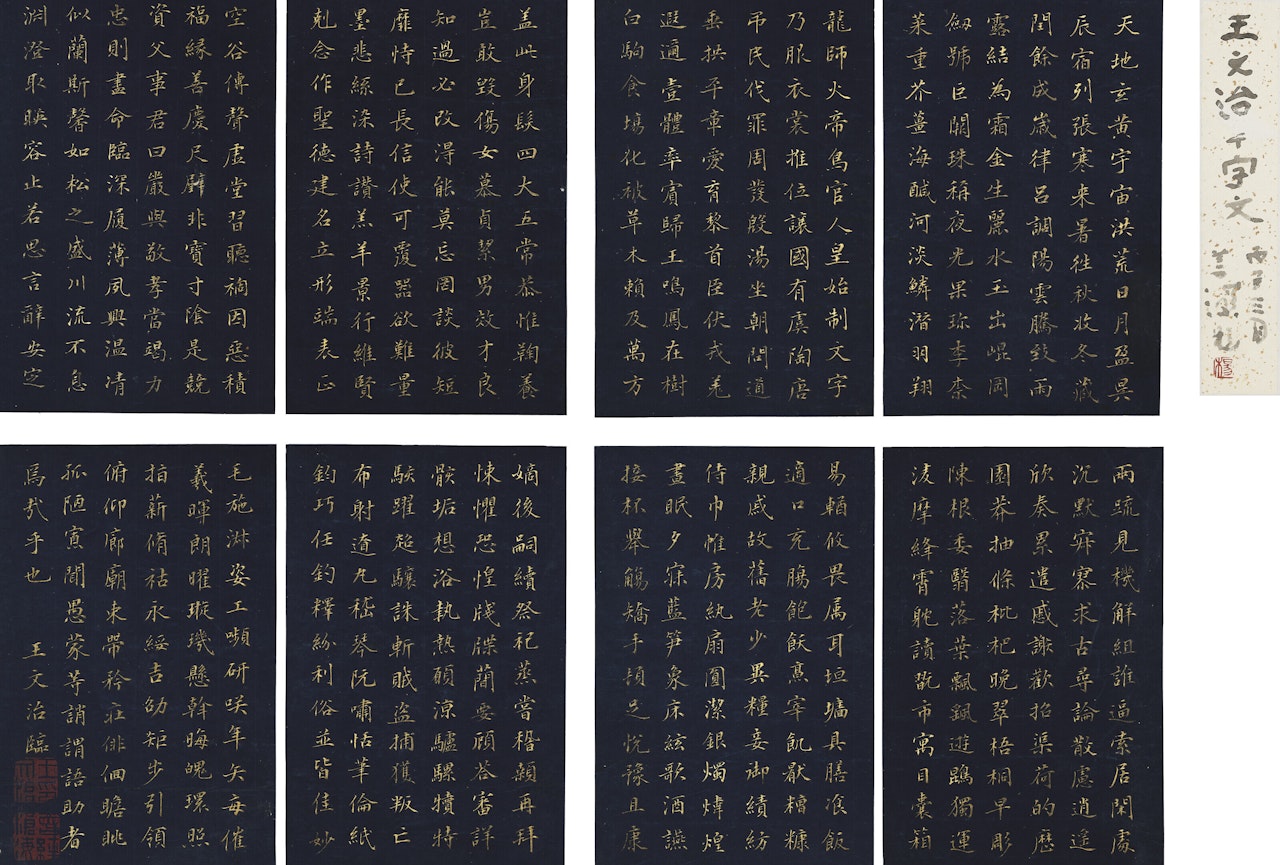 王文治千字文
丙子三月
天地玄黃宇宙洪荒日月盈昃
辰宿列張寒来暑往秋收冬藏
閏餘成歲律呂調陽雲騰致雨
露結為霜金生麗水玉出崐岡
劒號巨闕珠稱夜光果珍李柰
菜重芥薑海鹹河淡鱗潛羽翔
龍師火帝鳥官人皇始制文字
乃服衣裳推位讓國有虞陶唐
弔民伐罪周發殷湯坐朝問道
垂拱平章愛育黎首臣伏戎羌
遐邇壹體率賓歸王鳴鳳在樹
白駒食場化被草木賴及萬方
盖此身髮四大五常恭惟鞠養
豈敢毀傷女慕貞絜男效才良
知過必改得能莫忘罔談彼短
靡恃己長信使可覆器欲難量
墨悲絲染詩讚羔羊景行維賢
剋念作聖德建名立形端表正
空谷傳聲虛堂習聽禍因惡積
福緣善慶尺璧非寶寸陰是競
資父事君曰嚴與敬孝當竭力
忠則盡命臨深履薄夙興溫凊
似蘭斯馨如松之盛川流不息
淵澄取暎容止若思言辭安定
兩疏見機解組誰逼索居閑處
沉默寂寥求古尋論散慮逍遙
欣奏累遣慼謝歡招渠荷的歷
園莽抽條枇杷晚翠梧桐早彫
陳根委翳落葉飄颻遊鵾獨運
淩摩絳霄耽讀翫市寓目囊箱
易輶攸畏属耳垣墻具膳飡飯
適口充腸飽飫烹宰飢猒糟糠
親戚故舊老少異糧妾御績紡
侍巾帷房紈扇圓潔銀燭煒煌
晝眠夕寐藍笋象床絃歌酒讌
接杯舉觴矯手頓足悅豫且康
嫡後嗣續祭祀蒸嘗稽顙再拜
悚懼恐惶牋牒蕳要顧荅審詳
骸垢想浴執熱願涼驢騾犢特
駭躍超驤誅斬賊盜捕獲叛亡
布射遼丸嵇琴阮嘯恬筆倫紙
鈞巧任釣釋紛利俗並皆佳妙
毛施淑姿工嚬研咲年矢每催
羲暉朗曜璇璣懸斡晦魄環照
指薪脩祜永綏吉劭矩步引領
俯仰廊廟束帶矜莊俳佪瞻眺
孤陋寡聞愚蒙等誚謂語助者
焉哉乎也 王文治臨